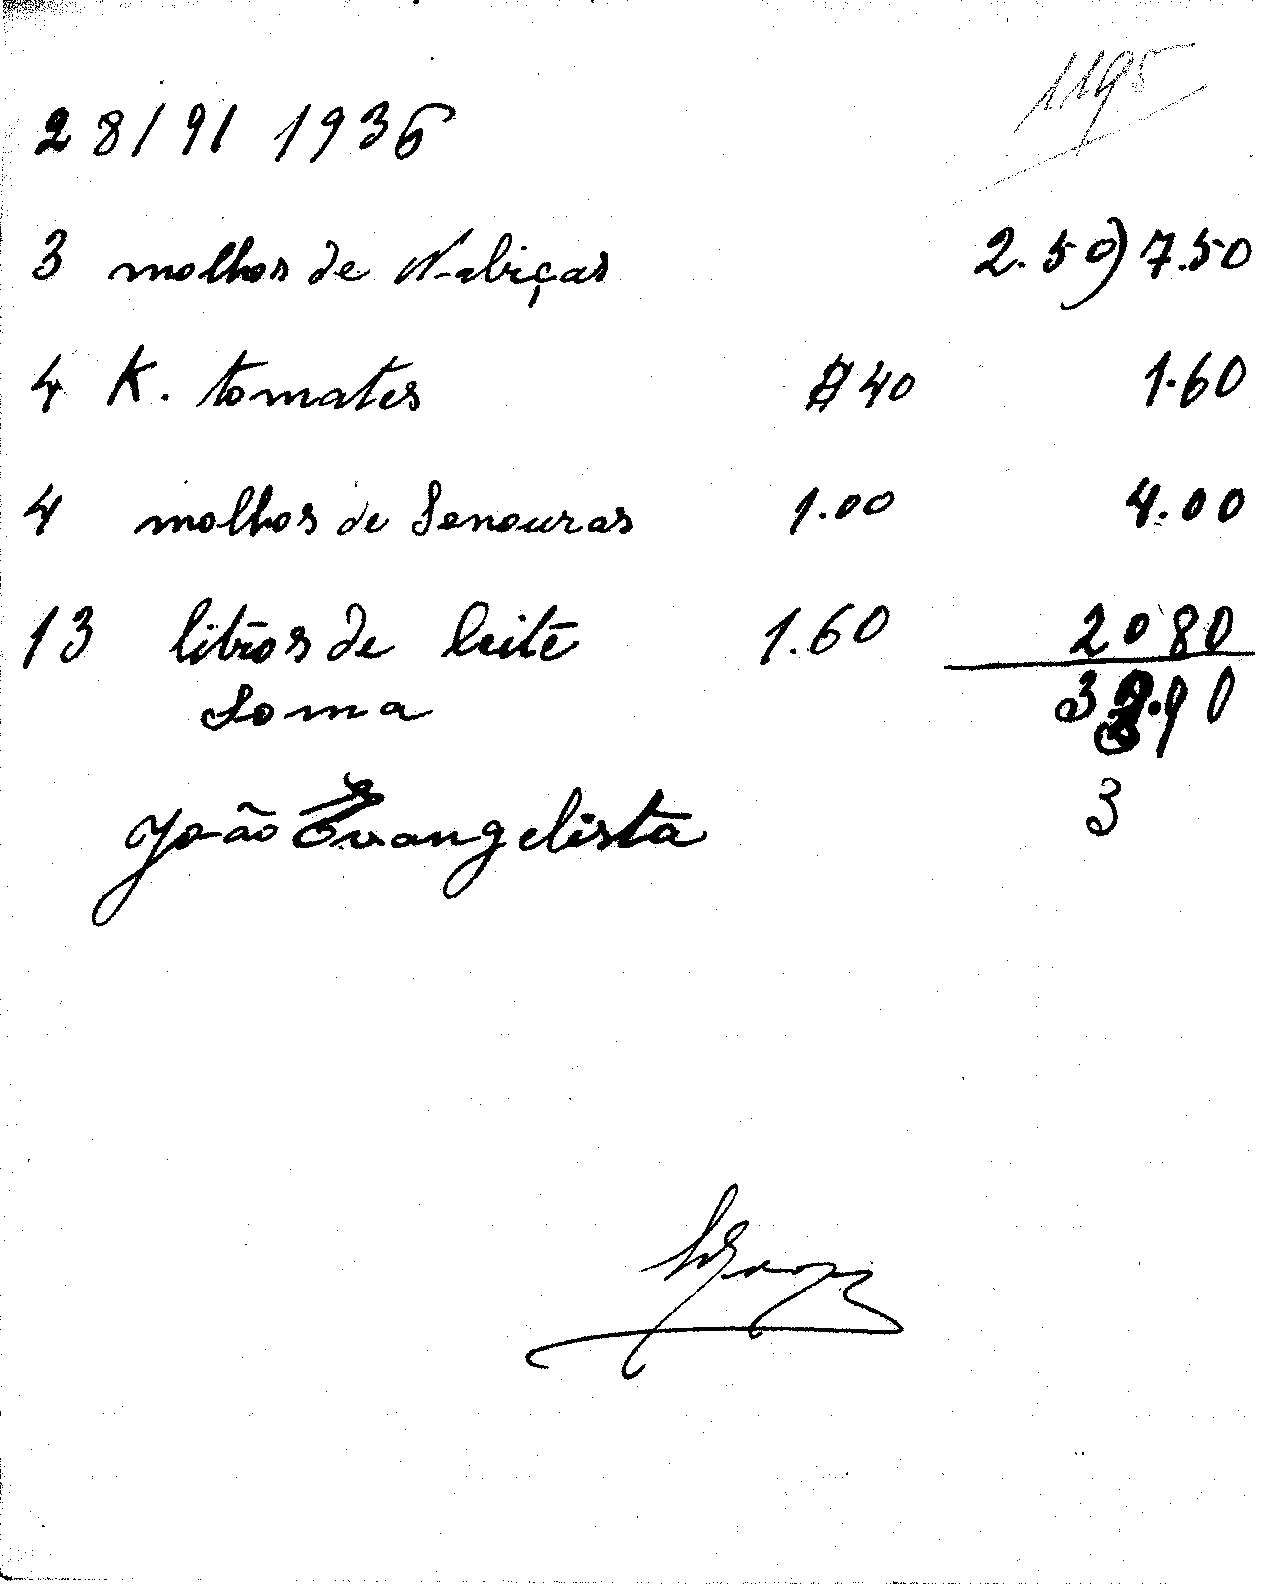 1195
28/9/ 1936
3 molhos de Nabiças 2.50) 7.50
4 K. tomates $40 1.60
4 molhos de Senouras 1.00 4.00
13 litros de leite 1.60 2080
Soma 33.90
3
João Evangelista